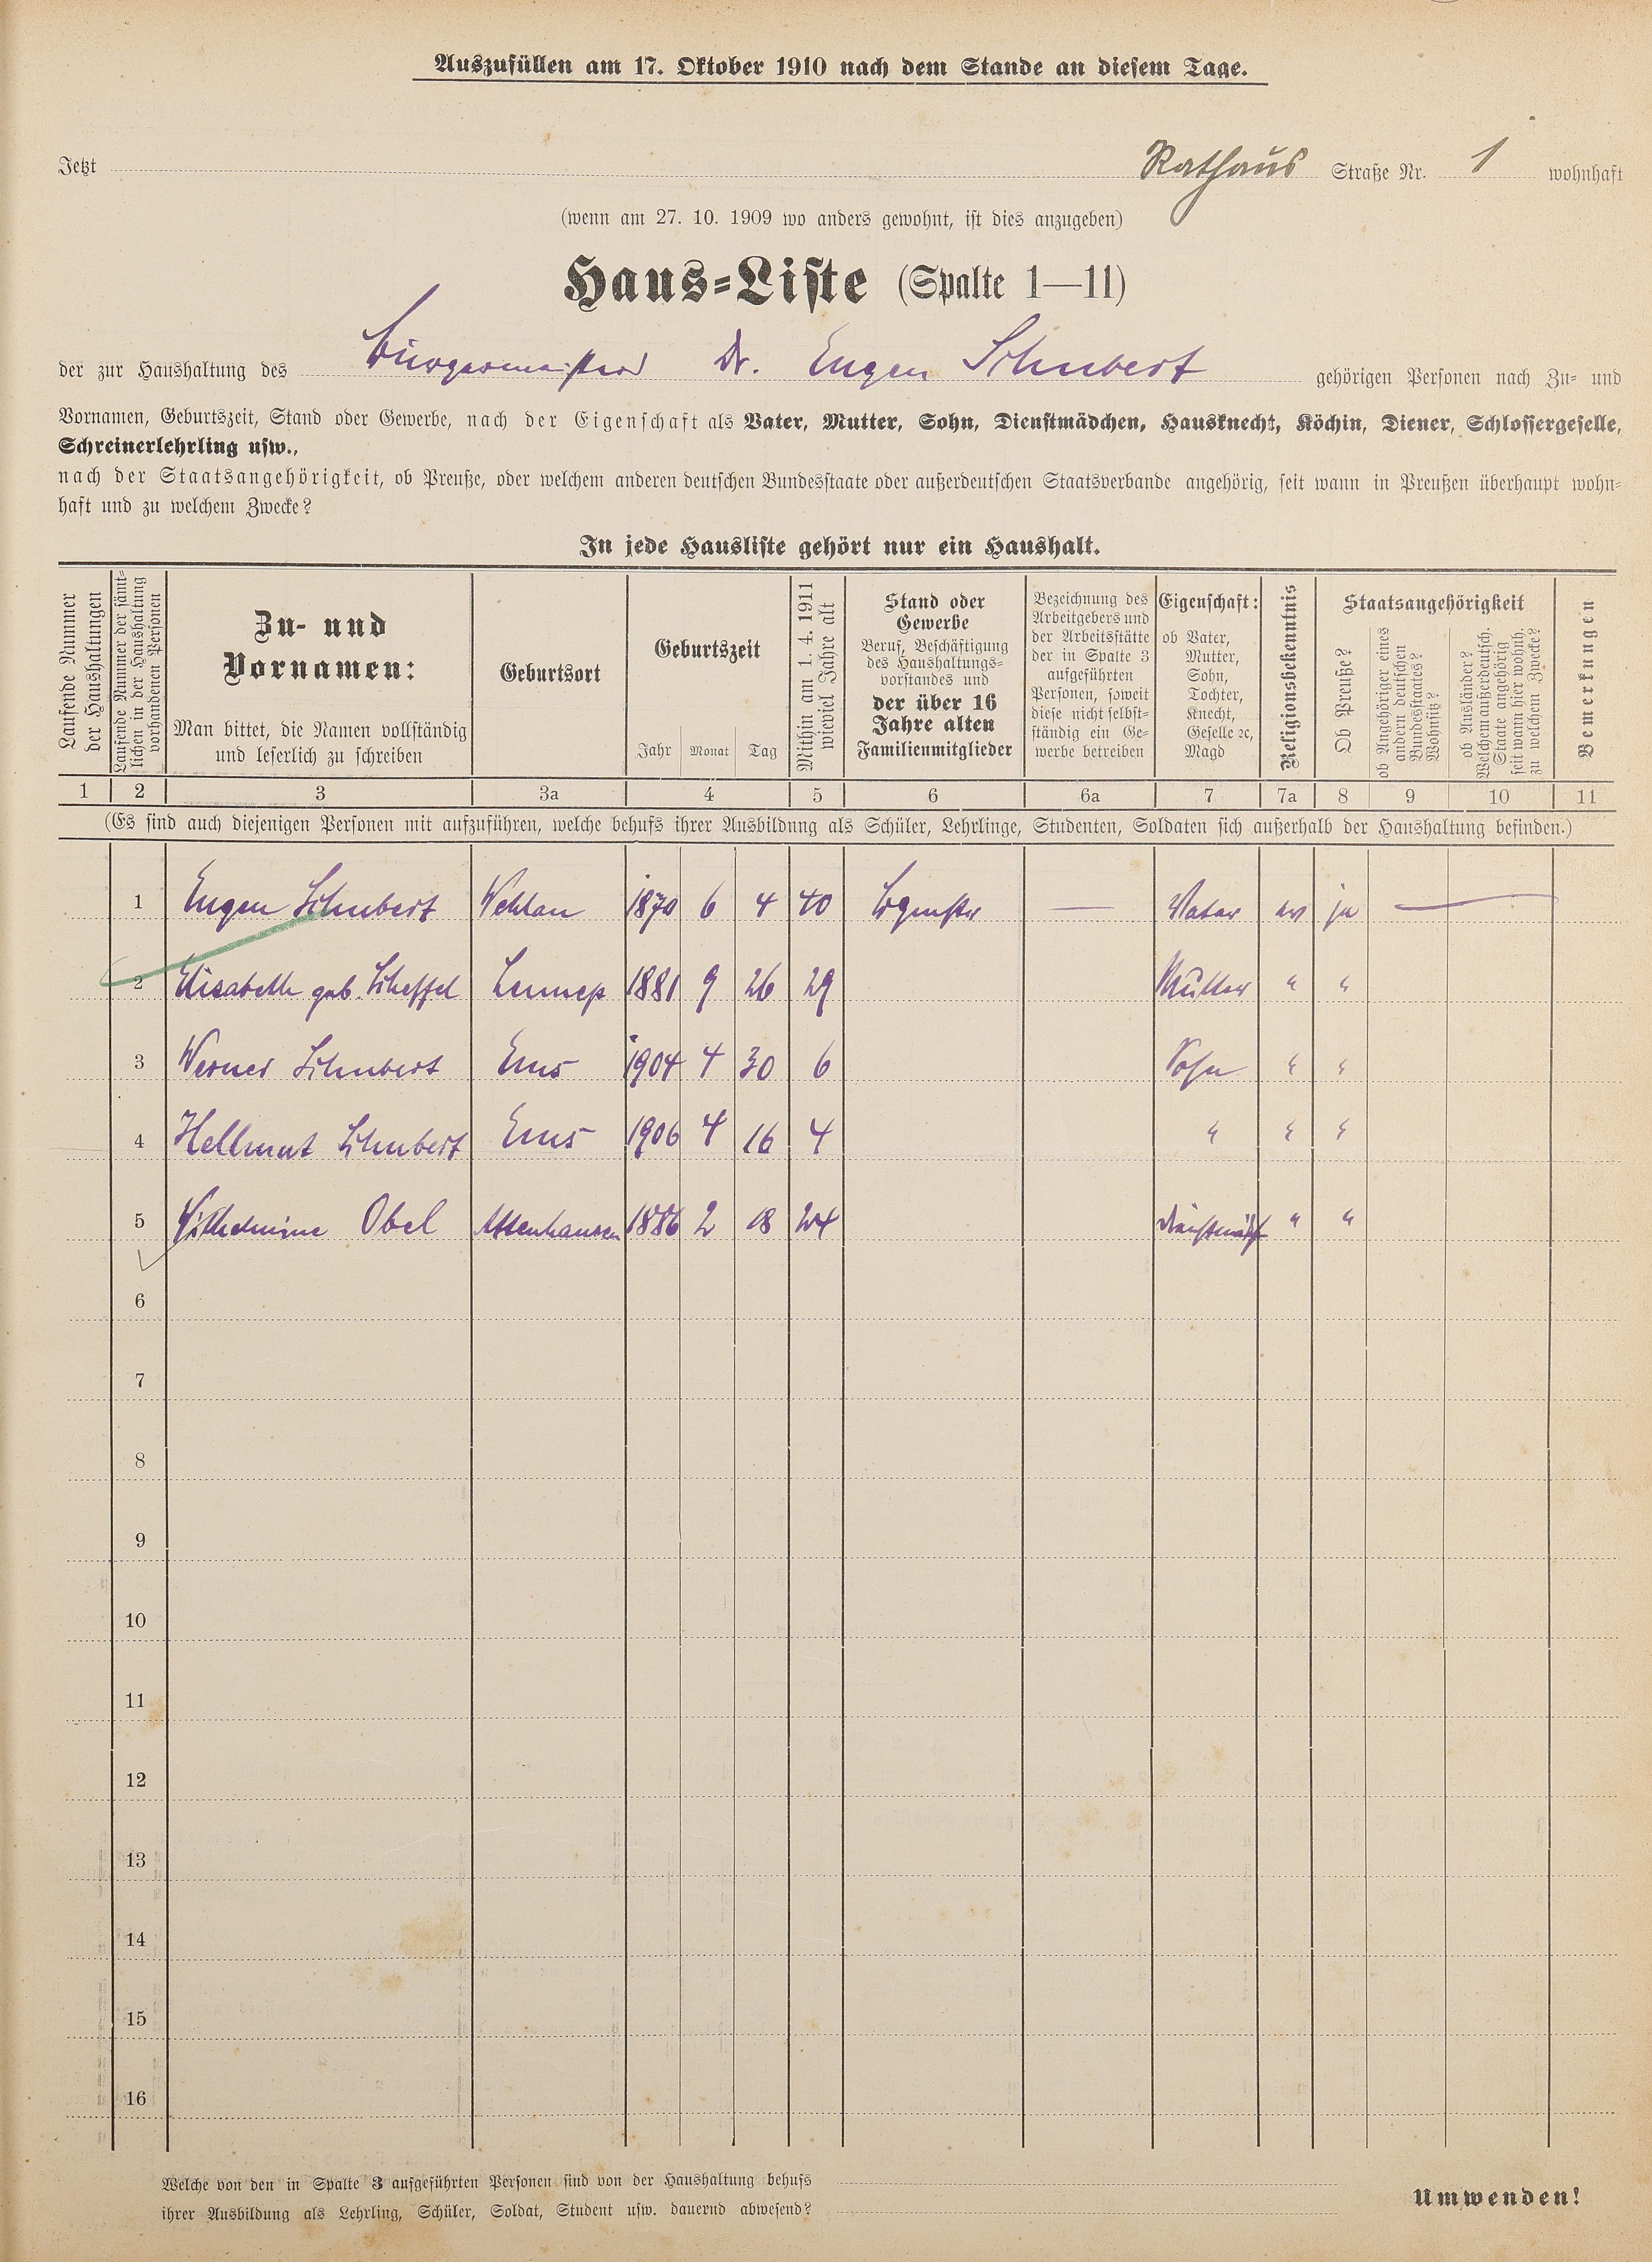 Auszufüllen am 17. Oktober 1910 nach dem Stande an diesem Tage.
Jetzt Rathaus Straße Nr. 1 wohnhaft
(wenn am 27. 10. 1909 wo anders gewohnt, ist dies anzugeben)
Haus-Liste (Spalte 1—11)
der zur Haushaltung des Bürgermeisters Dr. Eugen Schubert gehörigen Personen nach Zu- und
Vornamen, Geburtszeit, Stand oder Gewerbe, nach der Eigenschaft als Vater, Mutter, Sohn, Dienstmädchen, Hausknecht, Köchin, Diener, Schlossergeselle,
Schreinerlehrling usw.,
nach der Staatsangehörigkeit, ob Preuße, oder welchem anderen deutschen Bundesstaate oder außerdeutschen Staatsverbande angehörig, seit wann in Preußen überhaupt wohn-
haft und zu welchem Zwecke?
In jede Hausliste gehört nur ein Haushalt.
Laufende Nummer
der Haushaltungen
Laufende Nummer der sämt-
lichen in der Haushaltung
vorhandenen Personen
Zu- und
Vornamen:
Man bittet, die Namen vollständig
und leserlich zu schreiben
Geburtsort
Geburtszeit
Jahr Monat Tag
Mithin am 1. 4. 1911
wieviel Jahre alt
Stand oder
Gewerbe
Beruf, Beschäftigung
des Haushaltungs-
vorstandes und
der über 16
Jahre alten
Familienmitglieder
Bezeichnung des
Arbeitgebers und
der Arbeitsstätte
der in Spalte 3
aufgeführten
Personen, soweit
diese nicht selbst-
ständig ein Ge-
werbe betreiben
Eigenschaft:
ob Vater,
Mutter,
Sohn,
Tochter,
Knecht,
Geselle ꝛc,
Magd
Religionsbekenntnis
Staatsangehörigkeit
Ob Preuße?
ob Angehöriger eines
andern deutschen
Bundesstaates?
Wohnsitz?
ob Ausländer?
Welchem außerdeutsch.
Staate angehörig
seit wann hier wohnh.
zu welchem Zwecke?
Bemerkungen
1 2 3 3a 4 5 6 6a 7 7a 8 9 10 11
(Es sind auch diejenigen Personen mit aufzuführen, welche behufs ihrer Ausbildung als Schüler, Lehrlinge, Studenten, Soldaten sich außerhalb der Haushaltung befinden.)
1 Eugen Schubert Wehlau 1870 6 4 40 Bgmstr — Vater ev ja —
2 Elisabeth geb. Scheffel Lennep 1881 9 26 29 Mutter " "
3 Werner Schubert Ems 1904 4 30 6 Sohn " "
4 Hellmut Schubert Ems 1906 4 16 4 " " "
5 Wilhelmine Obel Attenhausen 1886 2 18 24 " "
6
7
8
9
10
11
12
13
14
15
16
Welche von den in Spalte 3 aufgeführten Personen sind von der Haushaltung behufs
ihrer Ausbildung als Lehrling, Schüler, Soldat, Student usw. dauernd abwesend?
Umwenden!